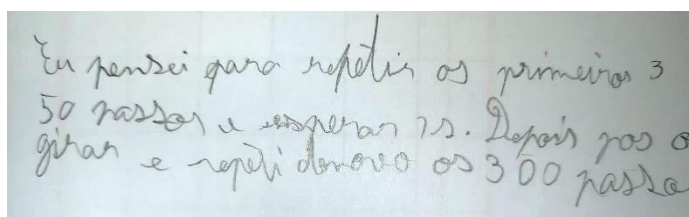 Eu pensei para repetir os primeiros 3
50 passos e esperar 1s. Depois pos o
girar e repeti denovo os 300 passo